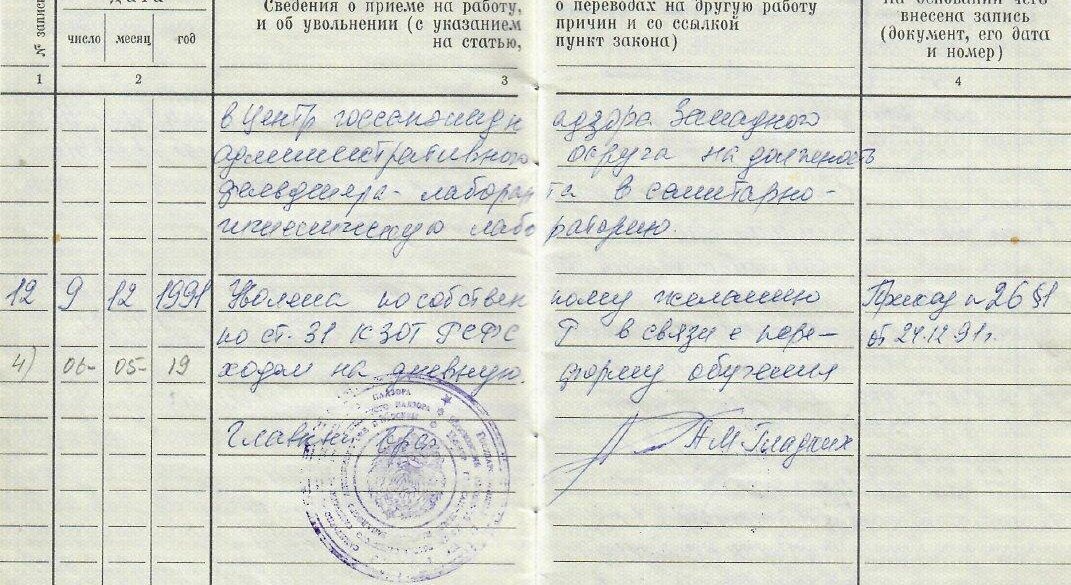 № запис
Дата
число месяц год
Сведения о приеме на работу, о переводах на другую работу
и об увольнении (с указанием причин и со ссылкой
на статью, пункт закона)
На основании чего
внесена запись
(документ, его дата
и номер)
1 2 3 4
в Центр госсанэпидн адзора Западного
административного округа на должность
фельдшера-лаборан та в санитарно-
гигиеническую лабо раторию.
12 9 12 1991 Уволена по собствен ному желанию Приказ № 26 §1
по ст. 31 КЗОТ РСФС Р в связи с пере- от 24.12.91г.
4) 06- 05- 19 ходом на дневную форму обучения
Главный врач А.М. Гладких
НАДЗОРА